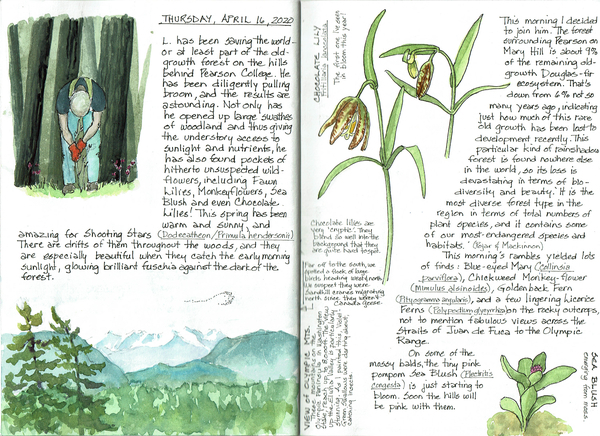 THURSDAY, APRIL 16, 2020
L. has been saving the world -
or at least part of the old-
growth forest on the hills
behind Pearson College. He
has been diligently pulling
broom, and the results are
astounding. Not only has
he opened up large swathes
of woodland and thus giving
the understory access to
sunlight and nutrients, he
has also found pockets of
hitherto unsuspected wild-
flowers, including Fawn
Lilies, Monkeyflowers, Sea
Blush and even Chocolate
Lilies! This spring has been
warm and sunny, and
amazing for Shooting Stars (Dodecatheon/Primula hendersonii)
There are drifts of them throughout the woods, and they
are especially beautiful when they catch the early morning
sunlight, glowing brilliant fuschia against the dark of the
forest.
VIEW OF OLYMPIC MTS.
CHOCOLATE LILY
Fritillaria lanceolata
The first one I've seen
in bloom this year!
Chocolate lilies are
very 'cryptic'. They
blend so well into the
background that they
are quite hard to spot.
Far off to the south, we
spotted a flock of large
birds heading west/north.
We suspect they were
Sandhill cranes migrating
north since they weren't
Canada geese.
This morning I decided
to join him. The forest
surrounding Pearson on
Mary Hill is about 9%
of the remaining old-
growth Douglas-fir
ecosystem. That's
down from 6% not so
many years ago, indicating
just how much of this rare
old growth has been lost to
development recently. This
particular kind of rainshadow
forest is found nowhere else
in the world, so its loss is
devastating in terms of bio-
diversity and beauty. 'It is the
most diverse forest type in the
region in terms of total numbers of
plant species, and it contains some
of our most endangered species and
habitats.' (Pojar & Mackinnon)
This morning's rambles yielded lots
of finds: Blue-eyed Mary (Collinsia
parviflora), Chickweed Monkey-flower
(Mimulus alsinoides), Goldenback Fern
(Pityogramma angularis), and a few lingering Licorice
Ferns (Polypodium glycyrrhiza) on the rocky outcrops,
not to mention fabulous views across the
Straits of Juan de Fuca to the Olympic
Range.
On some of the
mossy balds, the tiny pink
pompom Sea Blush (Plectritis
congesta) is just starting to
bloom. Soon the hills will
be pink with them.
SEA BLUSH
emerging from moss.